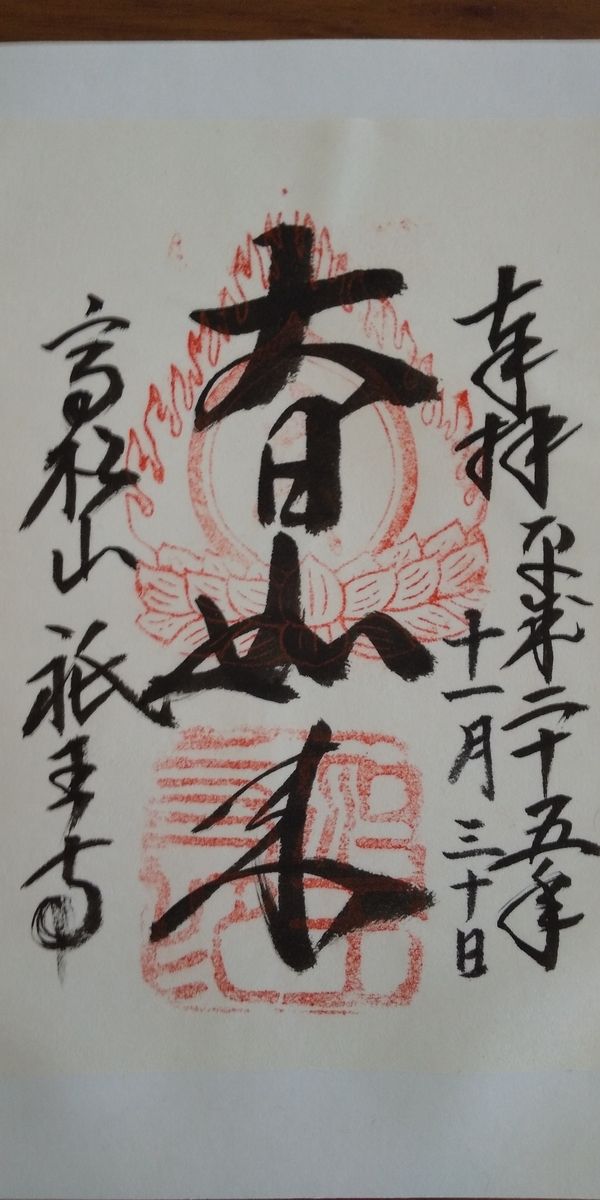 奉拝
平成二十五年
十一月三十日
大日如来
高松山 祇王寺